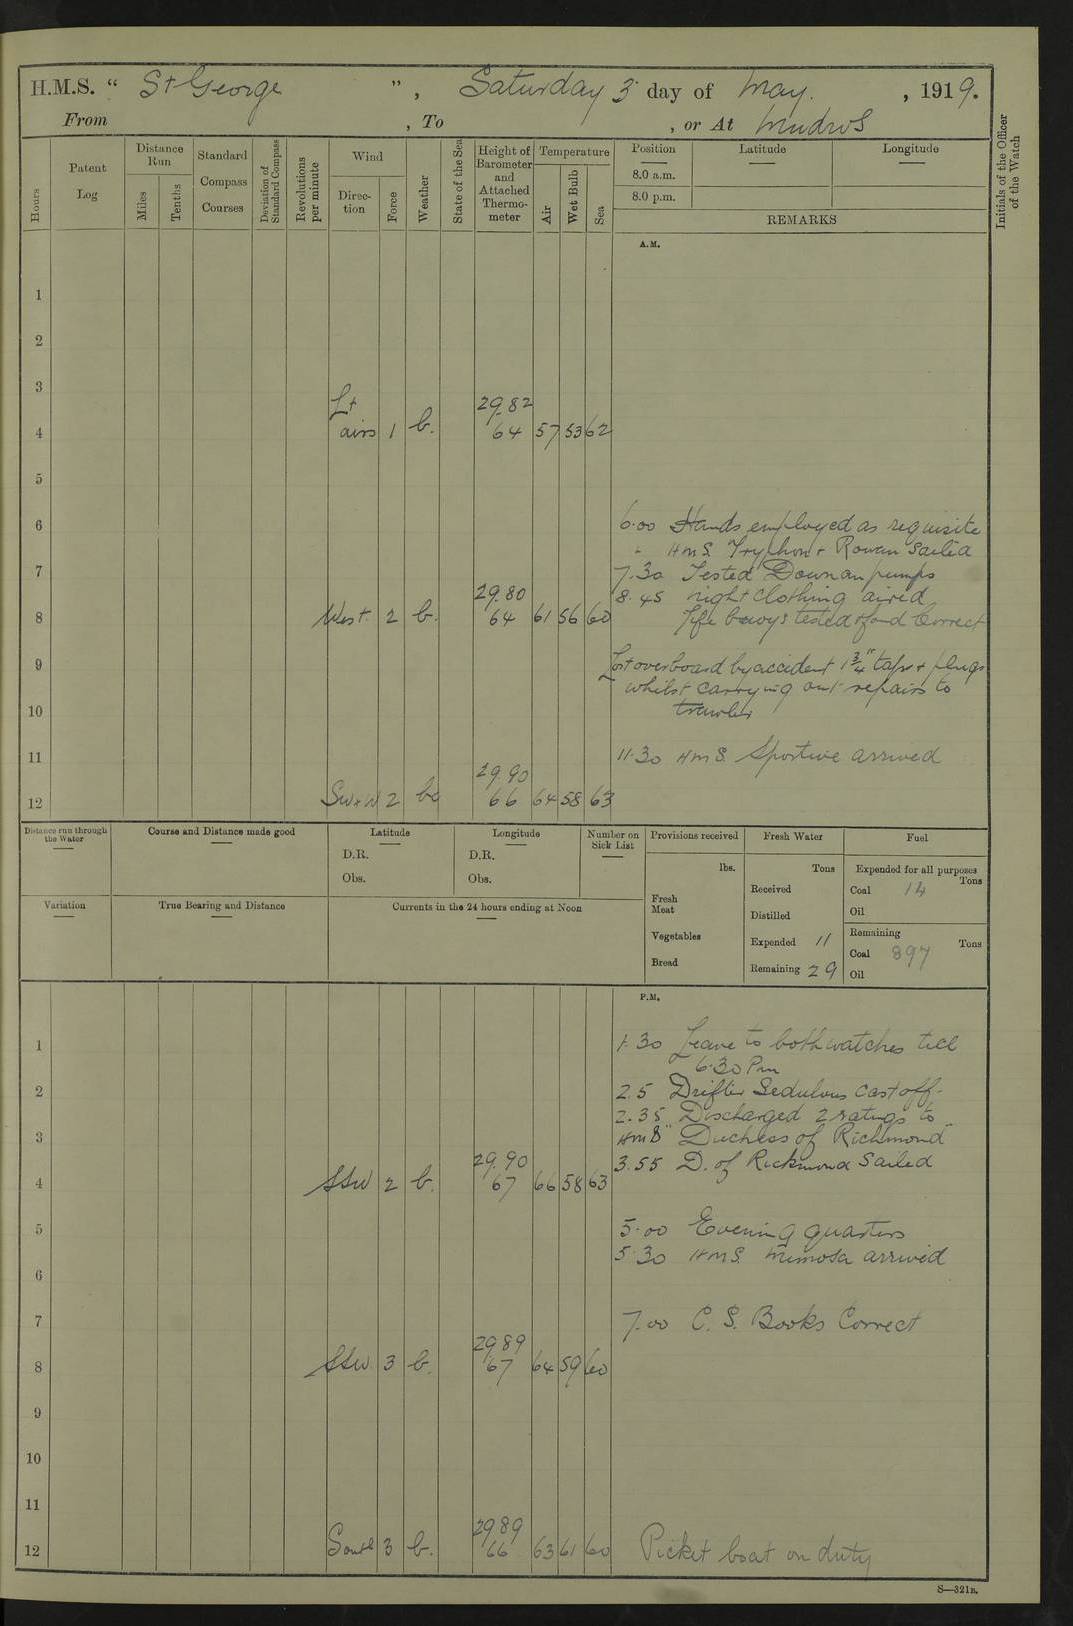 H.M.S. “ St George ” , Saturday 3 day of May. , 1919.
From , To , or At Mudros
Hours
Patent Log
Distance Run
Miles
Tenths
Standard Compass Courses
Deviation of Standard Compass
Revolutions per minute
Wind
Direction
Force
Weather
State of the Sea
Height of Barometer and Attached Thermometer
Temperature
Air
Wet Bulb
Sea
Position
8.0 a.m.
8.0 p.m.
Latitude
Longitude
REMARKS
Initials of the Officer of the Watch
A.M.
1
2
3
Lt 29.82
4 airs 1 b. 64 57 53 62
5
6 6.00 Hands employed as requisite
" HMS. Tryphon + Rowan Sailed
7 7.30 Tested Downan pumps
29.80 8.45 night clothing aired
8 West. 2 b. 64 61 56 60 life buoys tested & found Correct
9 Lost overboard by accident 1 3/4" taps + plugs
whilst carrying out repairs to
10 trawler
11 11.30 HMS. Sportive arrived
29.90
12 SW+W 2 bc 66 64 58 63
Distance run through the Water
Course and Distance made good
Latitude
D.R.
Obs.
Longitude
D.R.
Obs.
Number on Sick List
Provisions received
lbs.
Fresh Meat
Vegetables
Bread
Fresh Water
Tons
Received
Distilled
Expended 11
Remaining 29
Fuel
Expended for all purposes
Tons
Coal 14
Oil
Remaining
Tons
Coal 897
Oil
Variation
True Bearing and Distance
Currents in the 24 hours ending at Noon
P.M.
1 1.30 Leave to both watches till
6.30 Pm
2 2.5 Drifter Sedulous cast off.
2.35 Discharged 2 ratings to
3 HMS "Duchess of Richmond"
29.90 3.55 D. of Richmond Sailed
4 SSW 2 b. 67 66 58 63
5 5.00 Evening quarters
5.30 HMS. Mimosa arrived
6
7 7.00 C. S. Books Correct
29.89
8 SSW. 3 b. 67 64 59 60
9
10
11
29.89
12 South 3 b. 66 63 61 60 Picket boat on duty
S—321B.